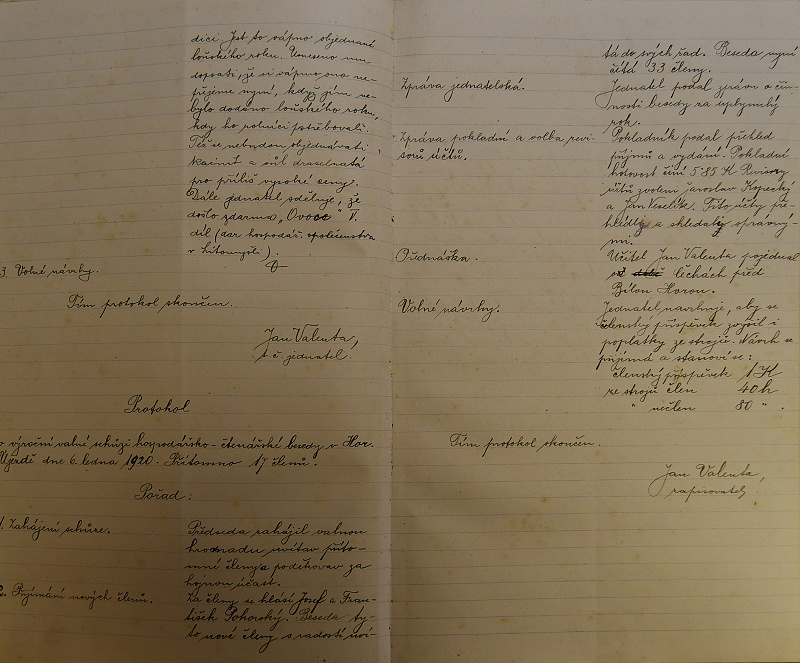 dící. Jest to vápno objednané
loňského roku. Usneseno mu
dopsati, že si vápno ono ne-
fužíme nyní, když jím ne-
bylo dodáno loňského roku,
kdy ho rolníci potřebovali.
Též se nebudou objednávati
kainit a sůl draselnatá
pro příliš vysoké ceny.
Dále jednatel sděluje, že
došlo zdarma „Ovoce" V.
díl (dar hospodář. společenstva
v Litomyšli).
3. Volné návrhy.
Tím protokol skončen.
Jan Valenta,
t. č. jednatel.
Protokol
o výroční valné schůzi hospodářsko-čtenářské besedy v Hor.
Újezdě dne 6. ledna 1920. Přítomno 17 členů.
Pořad:
1. Zahájení schůze.
Předseda zahájil valnou
hromadu uvítav příto-
mné členy a poděkovav za
hojnou účast.
2. Přijímání nových členů.
Za členy se hlásí Josef a Fran-
tišek Pohorský. Beseda ty-
to nové členy s radostí uví-
tá do svých řad. Beseda nyní
čítá 33 členy.
Zpráva jednatelská.
Jednatel podal zprávu o čin-
nosti besedy za uplynulý
rok.
Zpráva pokladní a volba revi-
sorů účtů.
Pokladník podal přehled
příjmů a vydání. Pokladní
hotovost činí 585 K Revisory
účtů zvoleni Jaroslav Kopecký
a Jan Veselík. Tito účty pře-
hlédly a shledaly správný-
mi.
Přednáška.
Učitel Jan Valenta pojednal
o Čechách před
Bílou Horou.
Volné návrhy.
Jednatel navrhuje, aby se
členský příspěvek zvýšil i
poplatky ze strojů. Návrh se
přijímá a stanoví se:
členský příspěvek 1 K
ze strojů člen 40 h
" nečlen 80 "
Tím protokol skončen.
Jan Valenta,
zapisovatel.